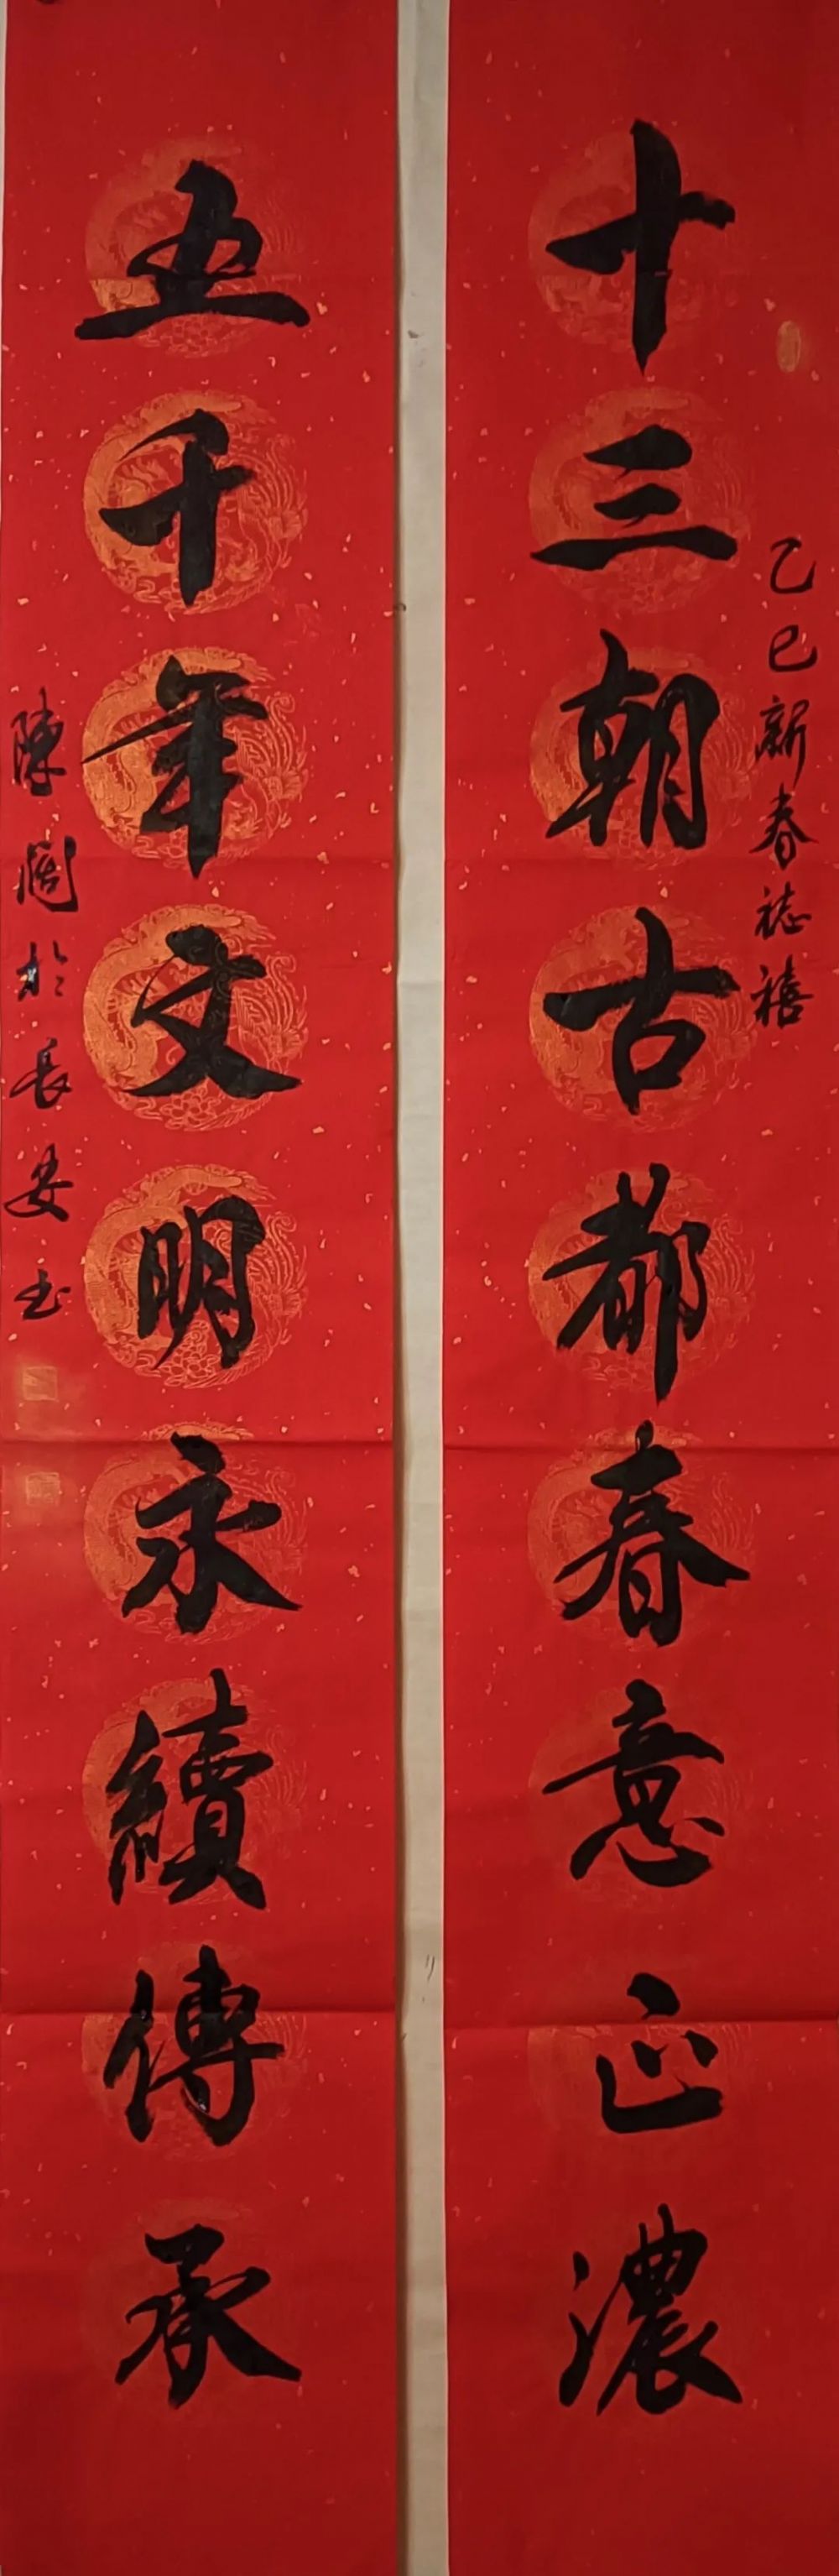 乙巳新春誌禧
十三朝古都春意正濃
五千年文明永續傳承
陳闊於長安書